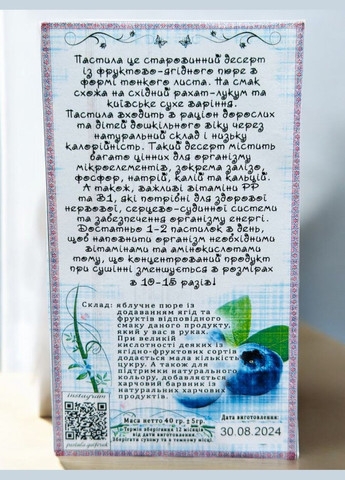 Пастила це старовинний десерт
із фруктово-ягідного пюре в
формі тонкого листа. На смак
схожа на східний рахат-лукум та
київське сухе варіння.
Пастила входить в раціон дорослих
та дітей дошкільного віку через
натуральний склад і низьку
калорійність. Такий десерт містить
багато цінних для організму
мікроелементів, зокрема залізо,
фосфор, натрій, калій та кальцій.
А також, важливі вітаміни РР
та В1, які потрібні для здорової
нервової, серцево-судинної системи
та забезпечення організму енергі.
Достатньо 1-2 пастилок в день,
щоб наповнити організм необхідними
вітамінами та амінокислотами
тому, що концентрований продукт
при сушінні зменшується в розмірах
в 10-15 разів!
Склад: яблучне пюре із
додаванням ягід та
фруктів відповідного
смаку даного продукту,
який у вас в руках.
При великій
кислотності деяких із
ягідно-фруктових сортів
додається мала кількість
цукру. А також для
підтримки натурального
кольору, добавляється
харчовий барвник із
натуральних харчових
продуктів.
instagram
Маса нетто 40 гр. ± 5гр.
Термін зберігання 12 місяців
від дати виготовлення.
Зберігати сухому та в темному місці.
Дата виготовлення:
30.08.2024